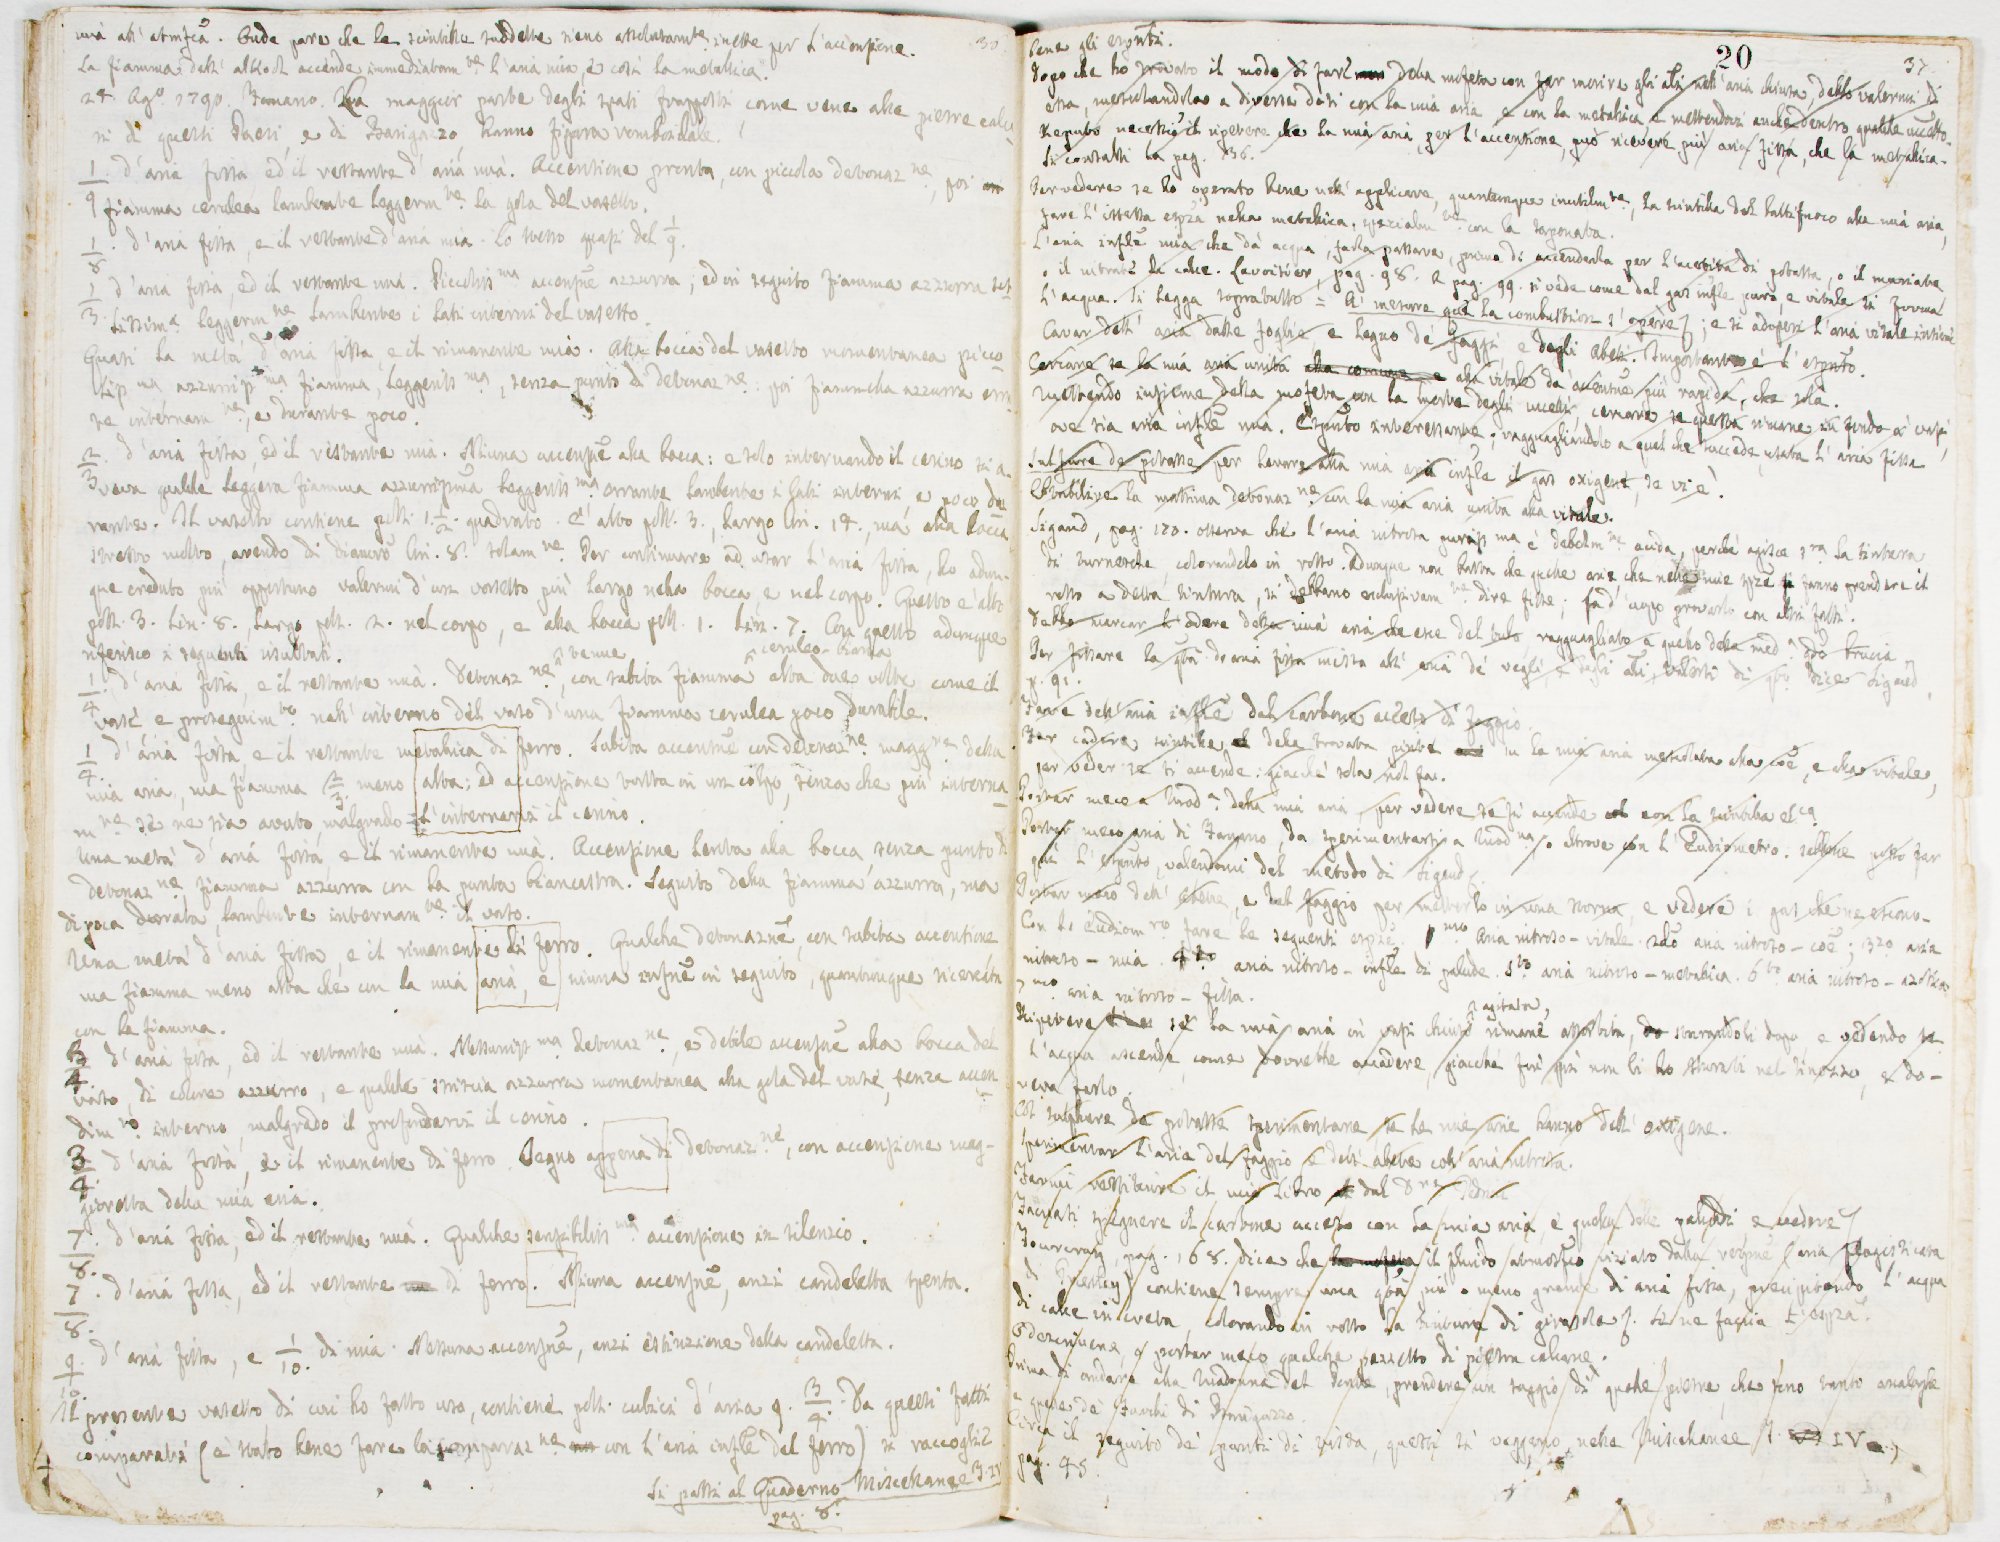 mia all' atmfca. Onde pare che le scintille suddette sieno assolutamte inette per l'accensione.
La fiamma dell' alkool accende immediatamte l'aria mia, e così la metallica.
24. Ago. 1790. Fanano. La maggior parte degli spati frapposti, come vene alle pietre calca
ri di questi Paesi, e di Barigazzo, hanno figura romboidale.
1/9 d'aria fissa ed il restante d'aria mia. Accensione pronta, con piccola detonazne, poi
fiamma cerulea lambente leggermte la gola del vasetto.
1/8. d'aria fissa, e il restante d'aria mia. Lo stesso quasi del 1/9.
1/3. d'aria fissa, ed il restante mia. Piccolissma accensne azzurra; ed in seguito fiamma azzurra sot
tilissima leggermne lambente i lati interni del vasetto.
Quasi la metà d'aria fissa, e il rimanente mia. Alla bocca del vasetto momentanea picco
lissma azzurrissma fiamma, leggerissma, senza punto di detonazne: poi fiammella azzurra erran
te internamne, e durante poco.
2/3. d'aria fissa, ed il restante mia. Niuna accensne alla bocca: e solo internando il cerino si a
veva qualche leggera fiamma azzurrissima leggerissma errante lambente i lati interni e poco du
rante. Il vasetto contiene poll. 1. 1/2. quadrato. E' alto poll. 3., largo lin. 14., ma alla bocca
stretto molto, avendo di diamro lin. 8. solamne. Per continuare ad usar l'aria fissa, ho adun-
que creduto più opportuno valermi d'un vasetto più largo nella bocca, e nel corpo. Questo è alto
poll. 3. lin. 8., largo poll. 2. nel corpo, e alla bocca poll. 1. lin. 7. Con questo adunque
riferisco i seguenti risultati.
1/4. d'aria fissa, e il restante mia. Detonazne tenue, con subita fiamma ceruleo-bianca alta due volte come il
vaso e proseguimto nell' interno del vaso d'una fiamma cerulea poco durabile.
1/4. d'aria fissa, e il restante metallica di ferro. Subita accensne con detonazne maggre della
mia aria, ma fiamma 1/3. meno alta: ed accensione tosta in un colpo, senza che più interna
mne se ne sia avuto, malgrado l'internarsi il cerino.
Una metà d'aria fissa, e il rimanente mia. Accensione lenta alla bocca senza punto di
detonazne, fiamma azzurra con la punta biancastra. Seguito della fiamma azzurra, ma
di poca durata, lambente internamte il vaso.
Una metà d'aria fissa, e il rimanente di ferro. Qualche detonazne, con subita accensione
ma fiamma meno alta che con la mia aria, e niuna in seguito, quantunque ricercata
con la fiamma.
3/4 d'aria fissa, ed il restante mia. Nessunissma detonazne, e debile accensne alla bocca del
vaso, di colore azzurro, e qualche striscia azzurra momentanea alla gola del vase, senza accen
dimto interno, malgrado il profondarvi il cerino.
3/4 d'aria fissa, e il rimanente di ferro. Segno appena di detonazne, con accensione mag-
gioretta della mia aria.
7/8. d'aria fissa, ed il restante mia. Qualche sensibilissma accensione in silenzio.
7/8. d'aria fissa, ed il restante di ferro. Niuna accensne, anzi candeletta spenta.
9/10. d'aria fissa, e 1/10. di mia. Nessuna accensne, anzi estinzione della candeletta.
Il presente vasetto di cui ho fatto uso, contiene poll. cubici d'aria 9. 3/4. Da questi fatti
comparativi (è stato bene fare la comparazne con l'aria infle del ferro) si raccoglie
Si passi al Quaderno Miscellanee T. IV
pag. 8.
20
37
bene gli espnti.
Dopo che ho trovato il modo di far della mofeta con far morire gli ali nell' aria chiusa, debbo valermi di
essa, mescolandola a diverse dosi con la mia aria, e con la metallica e mettendovi anche dentro qualche uccello.
Reputo necessrio il ripetere che la mia aria, per l'accensione, può ricevere più aria fissa, che la metallica.
Si consulti la pag. 36.
Per vedere se ho operato bene nell' applicare, quantunque inutilmte, la scintilla del battifuoco alla mia aria,
fare l'istessa espza nella metallica, specialmte con la saponata.
L'aria infle mia che dà acqua, farla passare, prima di accenderla per l'acqua di potassa, o il muriate
o il nitrate di calce. Lavoisier, pag. 98. e pag. 99. si vede come dal gas infle puro e vitale si forma
l'acqua. Si legga soprattutto = A' mesure que la combustion s'opère; e si adoperi l'aria vitale insieme
Cavar dell' aria dalle foglie e legno de' faggi, e degli abeti. Importante è l'espnto.
Cercare se la mia aria unita alla vitale dà accensne più rapida, che sola.
Mettendo insieme della mofeta con la morte degli uccelli, cercare se questa rimane in fondo a' vasi,
ove sia aria infle mia. Espnto interessante, ragguagliandolo a quel che succede, usata l'aria fissa
Sulfure de potasse per levare alla mia aria infle il gas oxigene, se vi è.
Stabilire la massima detonazne con la mia aria unita alla vitale.
Sigaud, pag. 170. osserva che l'aria nitrosa purissma è debolmte acida, perchè agisce sra la tintura
di tornesole, colorandola in rosso. Dunque non basta che quelle arie che nelle mie spze fanno prendere il
rosso a detta tintura, si debbano esclusivamte dire fisse; fa d'uopo provarlo con altri fatti.
Debbo marcar l'odore della mia aria che esce dal suolo ragguagliato a quello della meda qdo brucia.
Per fissare la qtà di aria fissa mista all' aria de' vegli, e degli ali, valersi di qto dice Sigaud,
p. 91.
Fare dell' aria infle del carbone acceso di faggio.
Far cadere scintille della trovata pietra su la mia aria mescolata alla coe, e alla vitale,
per veder se si accende: giacchè sola nol fa.
Portar meco a Moda della mia aria, per vedere se si accende con la scintilla elca
Portar meco aria di Fanano, da sperimentarsi a Modna, o altrove con l'Eudiometro. Sebbene posso far
qui l'espnto, valendomi del metodo di Sigaud.
Portar meco dell' abete, e del faggio per metterlo in una storta, e vedere i gas che ne escono.
Con lo Eudiomro fare le seguenti espze. 1mo Aria nitroso-vitale. 2do aria nitroso-coe; 3zo aria
nitroso-mia. 4to aria nitroso-infle di palude. 5to aria nitroso-metallica. 6to aria nitroso-azotica
7mo aria nitroso-fissa.
Ripetere se la mia aria in vasi chiusi rimane assorbita, agitata, sturandoli dopo e vedendo se
l'acqua ascende, come dovrebbe accadere, giacchè fin qui non li ho sturati nel tinozzo, e do-
veva farlo.
Col sulphure de potasse sperimentare, se le mie arie hanno dell' oxigene.
Sperimentar l'aria del faggio e dell' abete coll' aria nitrosa.
Farmi restituire il mio libro dal Sre
Facciasi spegnere il carbone acceso con la mia aria, e quella delle paludi e vedere
Fourcroy, pag. 168. dice che il fluido atmosfco viziato dalla respne (aria flogisticata
di Priestley) contiene sempre una qtà più o meno grande di aria fissa, precipitando l'acqua
di calce in creta, colorando in rosso la tintura di girasole. Se ne faccia l'espza.
Descrivere, e portar meco qualche pezzetto di pietra calcare.
Prima di andare alla Madonna del Ponte, prendere un saggio di quelle pietre, che sono tanto analoghe
a quelle de' fuochi di Barigazzo.
Circa il seguito de' punti di vista, questi si veggano nelle Miscellanee T. IV.
pag. 45.